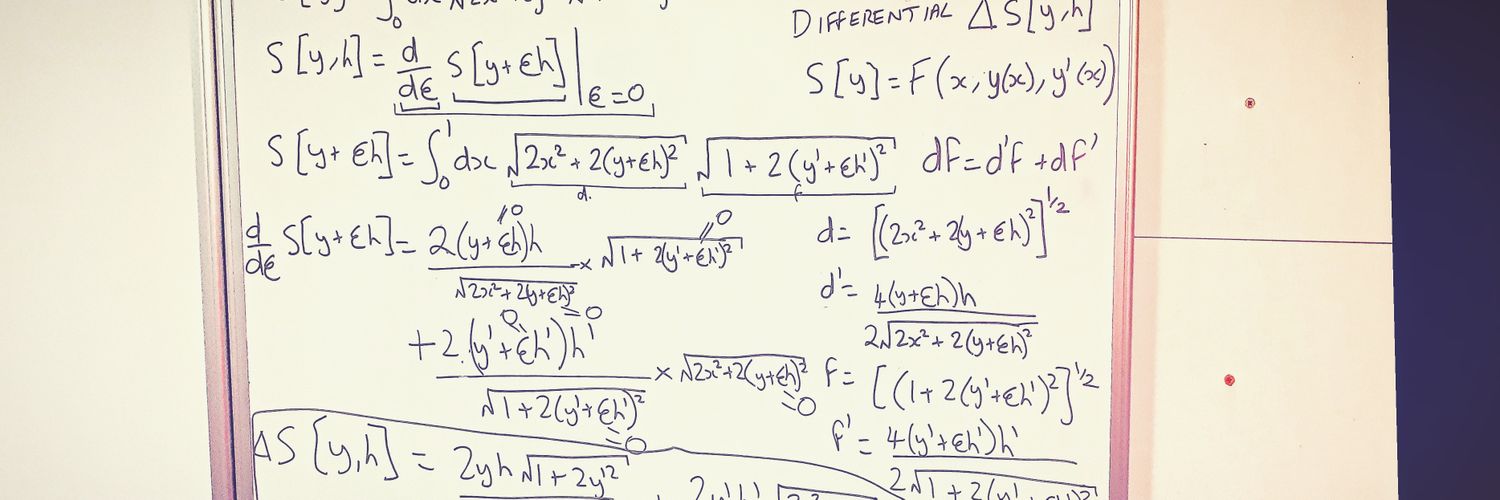 DIFFERENTIAL ΔS[y,h]
S[y,h] = d/dϵ S[y+ϵh] |ϵ=0
S[y] = F(x, y(x), y'(x))
S[y+ϵh] = ∫₀¹ dx √(2x² + 2(y+ϵh)²) √(1 + 2(y'+ϵh')²)
d. f
df = d'f + df'
d/dϵ S[y+ϵh] = 2(y+ϵh)h / √(2x²+2(y+ϵh)²) × √(1+2(y'+ϵh')²)
0 0 =0
d = [(2x² + 2(y+ϵh)²]^1/2
d' = 4(y+ϵh)h / 2√(2x² + 2(y+ϵh)²)
+ 2(y'+ϵh')h' / √(1+2(y'+ϵh')²) × √(2x²+2(y+ϵh)²)
0 =0 =0
f = [(1+2(y'+ϵh')²]^1/2
f' = 4(y'+ϵh')h' / 2√(1+2(y'
ΔS[y,h] = 2yh√(1+2y'²)